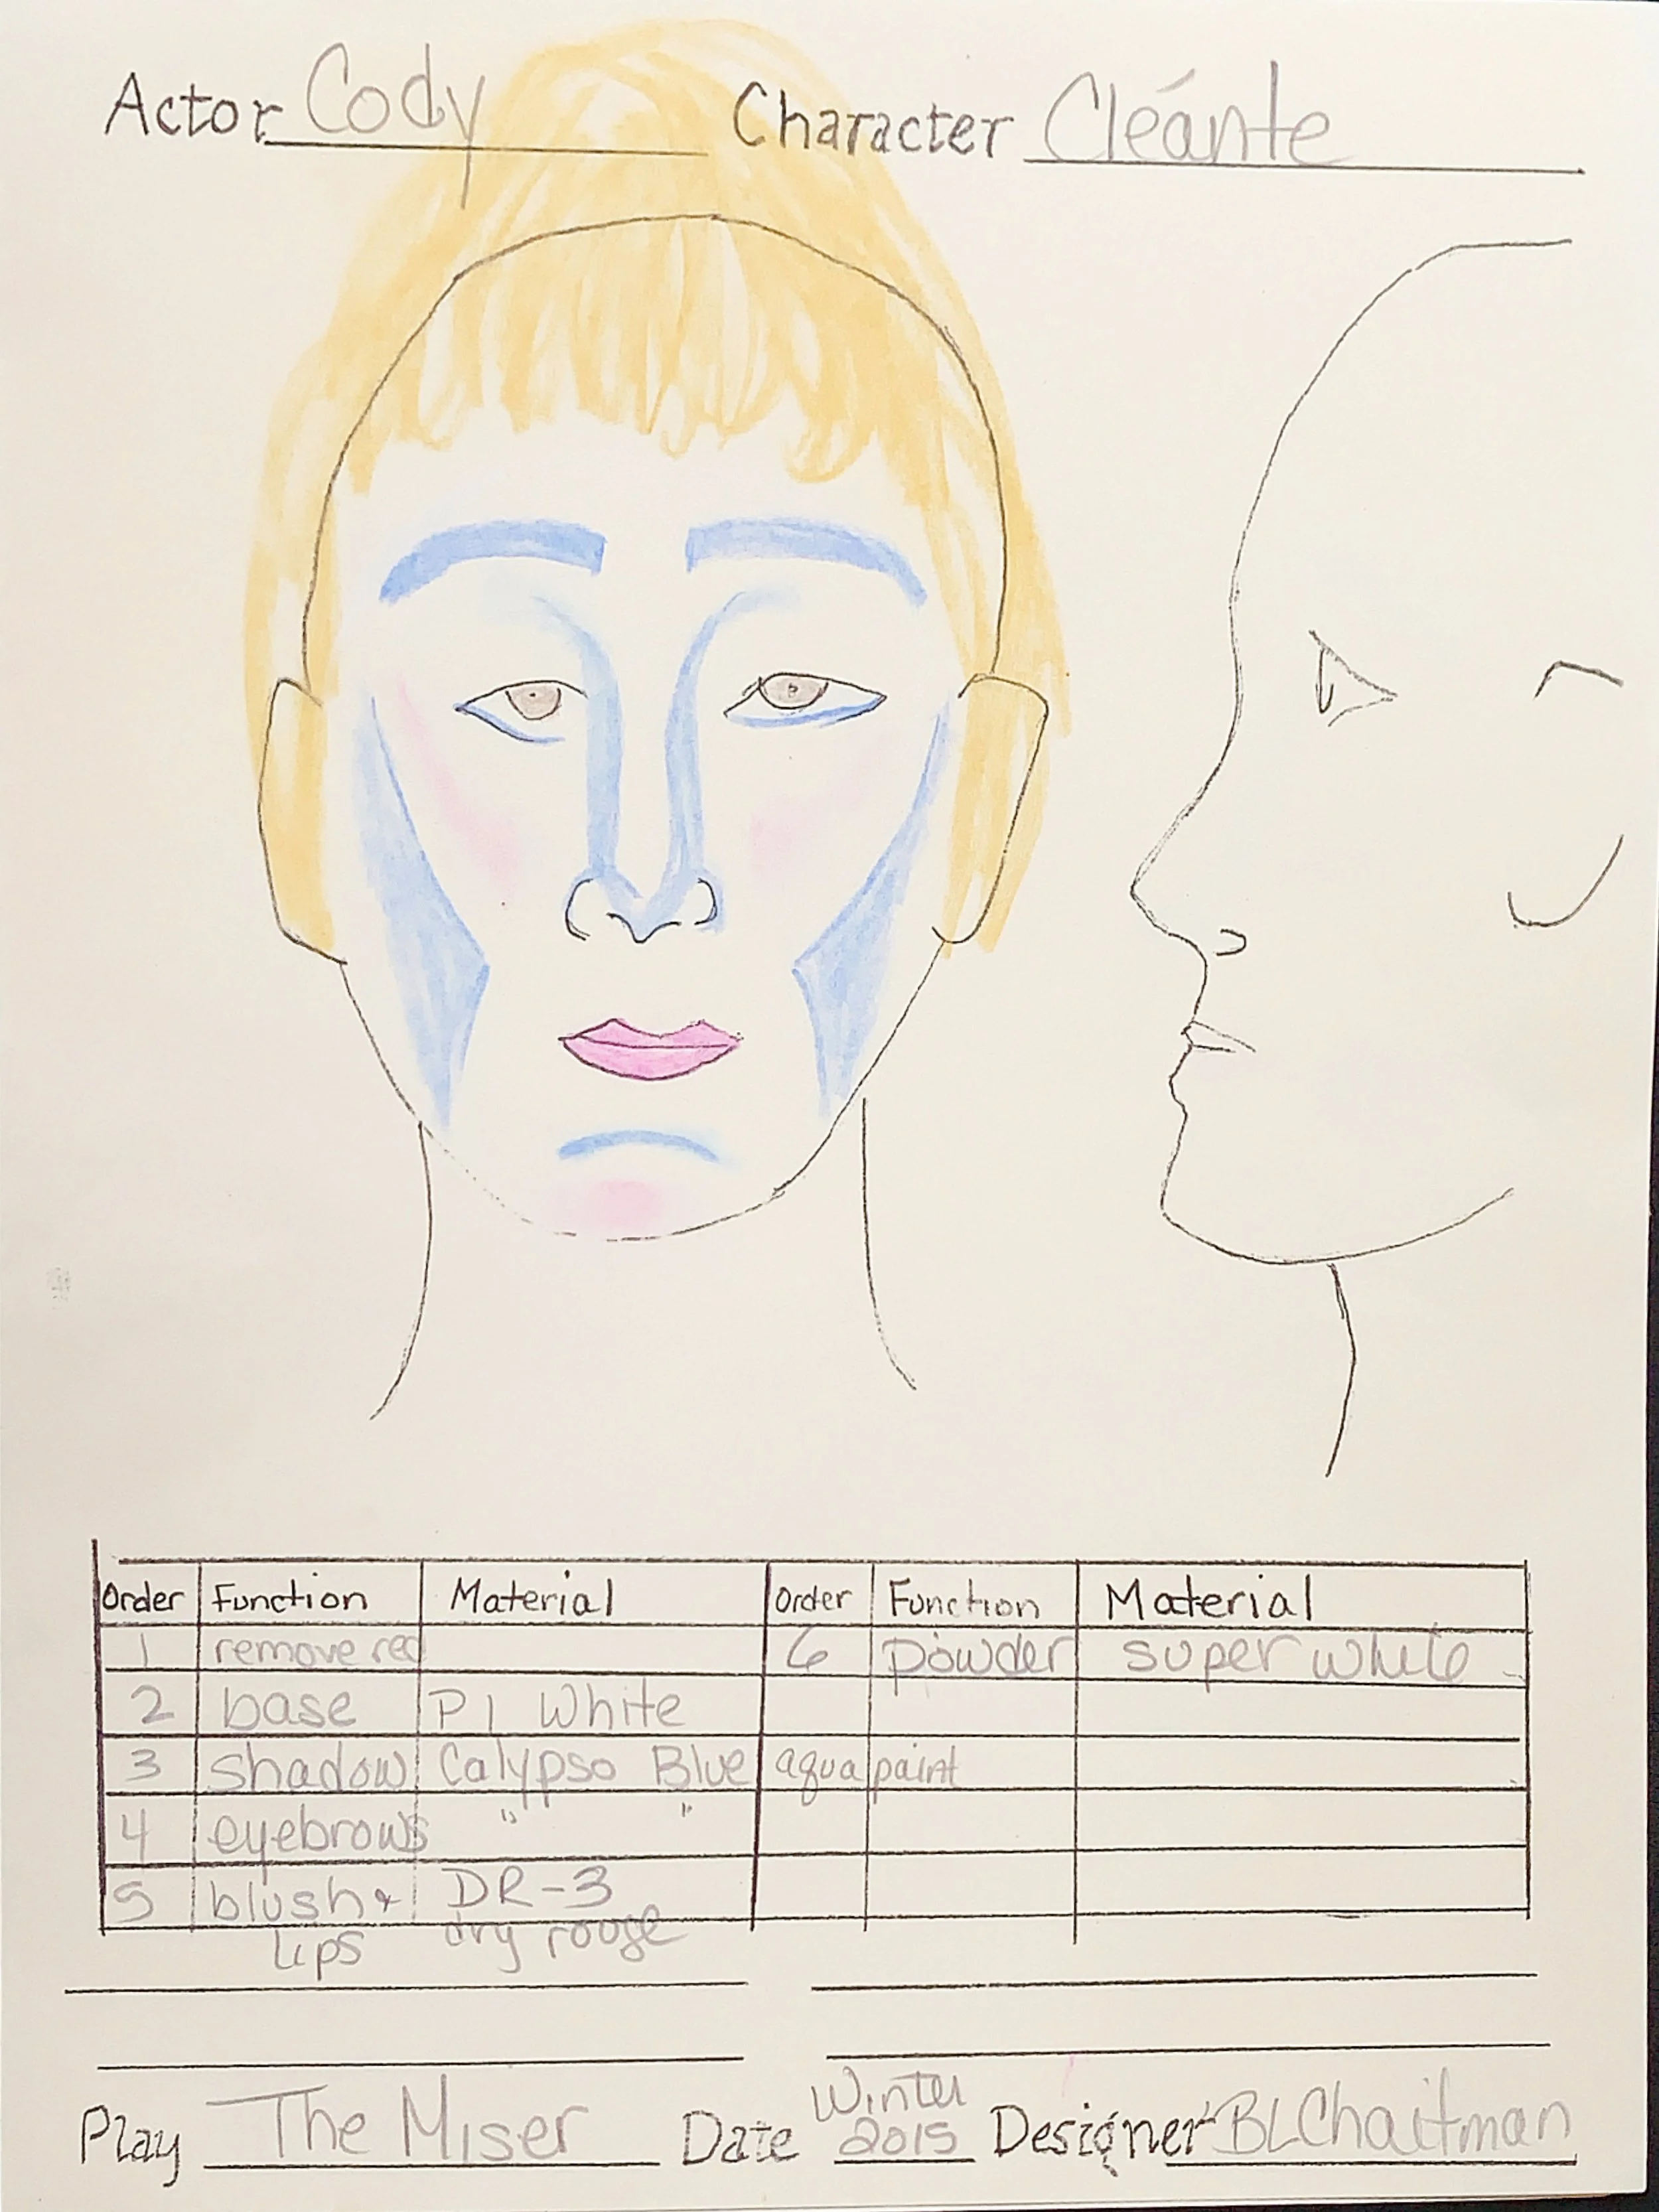 Actor Cody Character Cléante
Order Function Material Order Function Material
1 remove red 6 powder super white
2 base P1 White
3 shadow Calypso Blue aquapaint
4 eyebrows " "
5 blush + DR-3
lips dry rouge
Winter
Play The Miser Date 2015 Designer BLChaitman